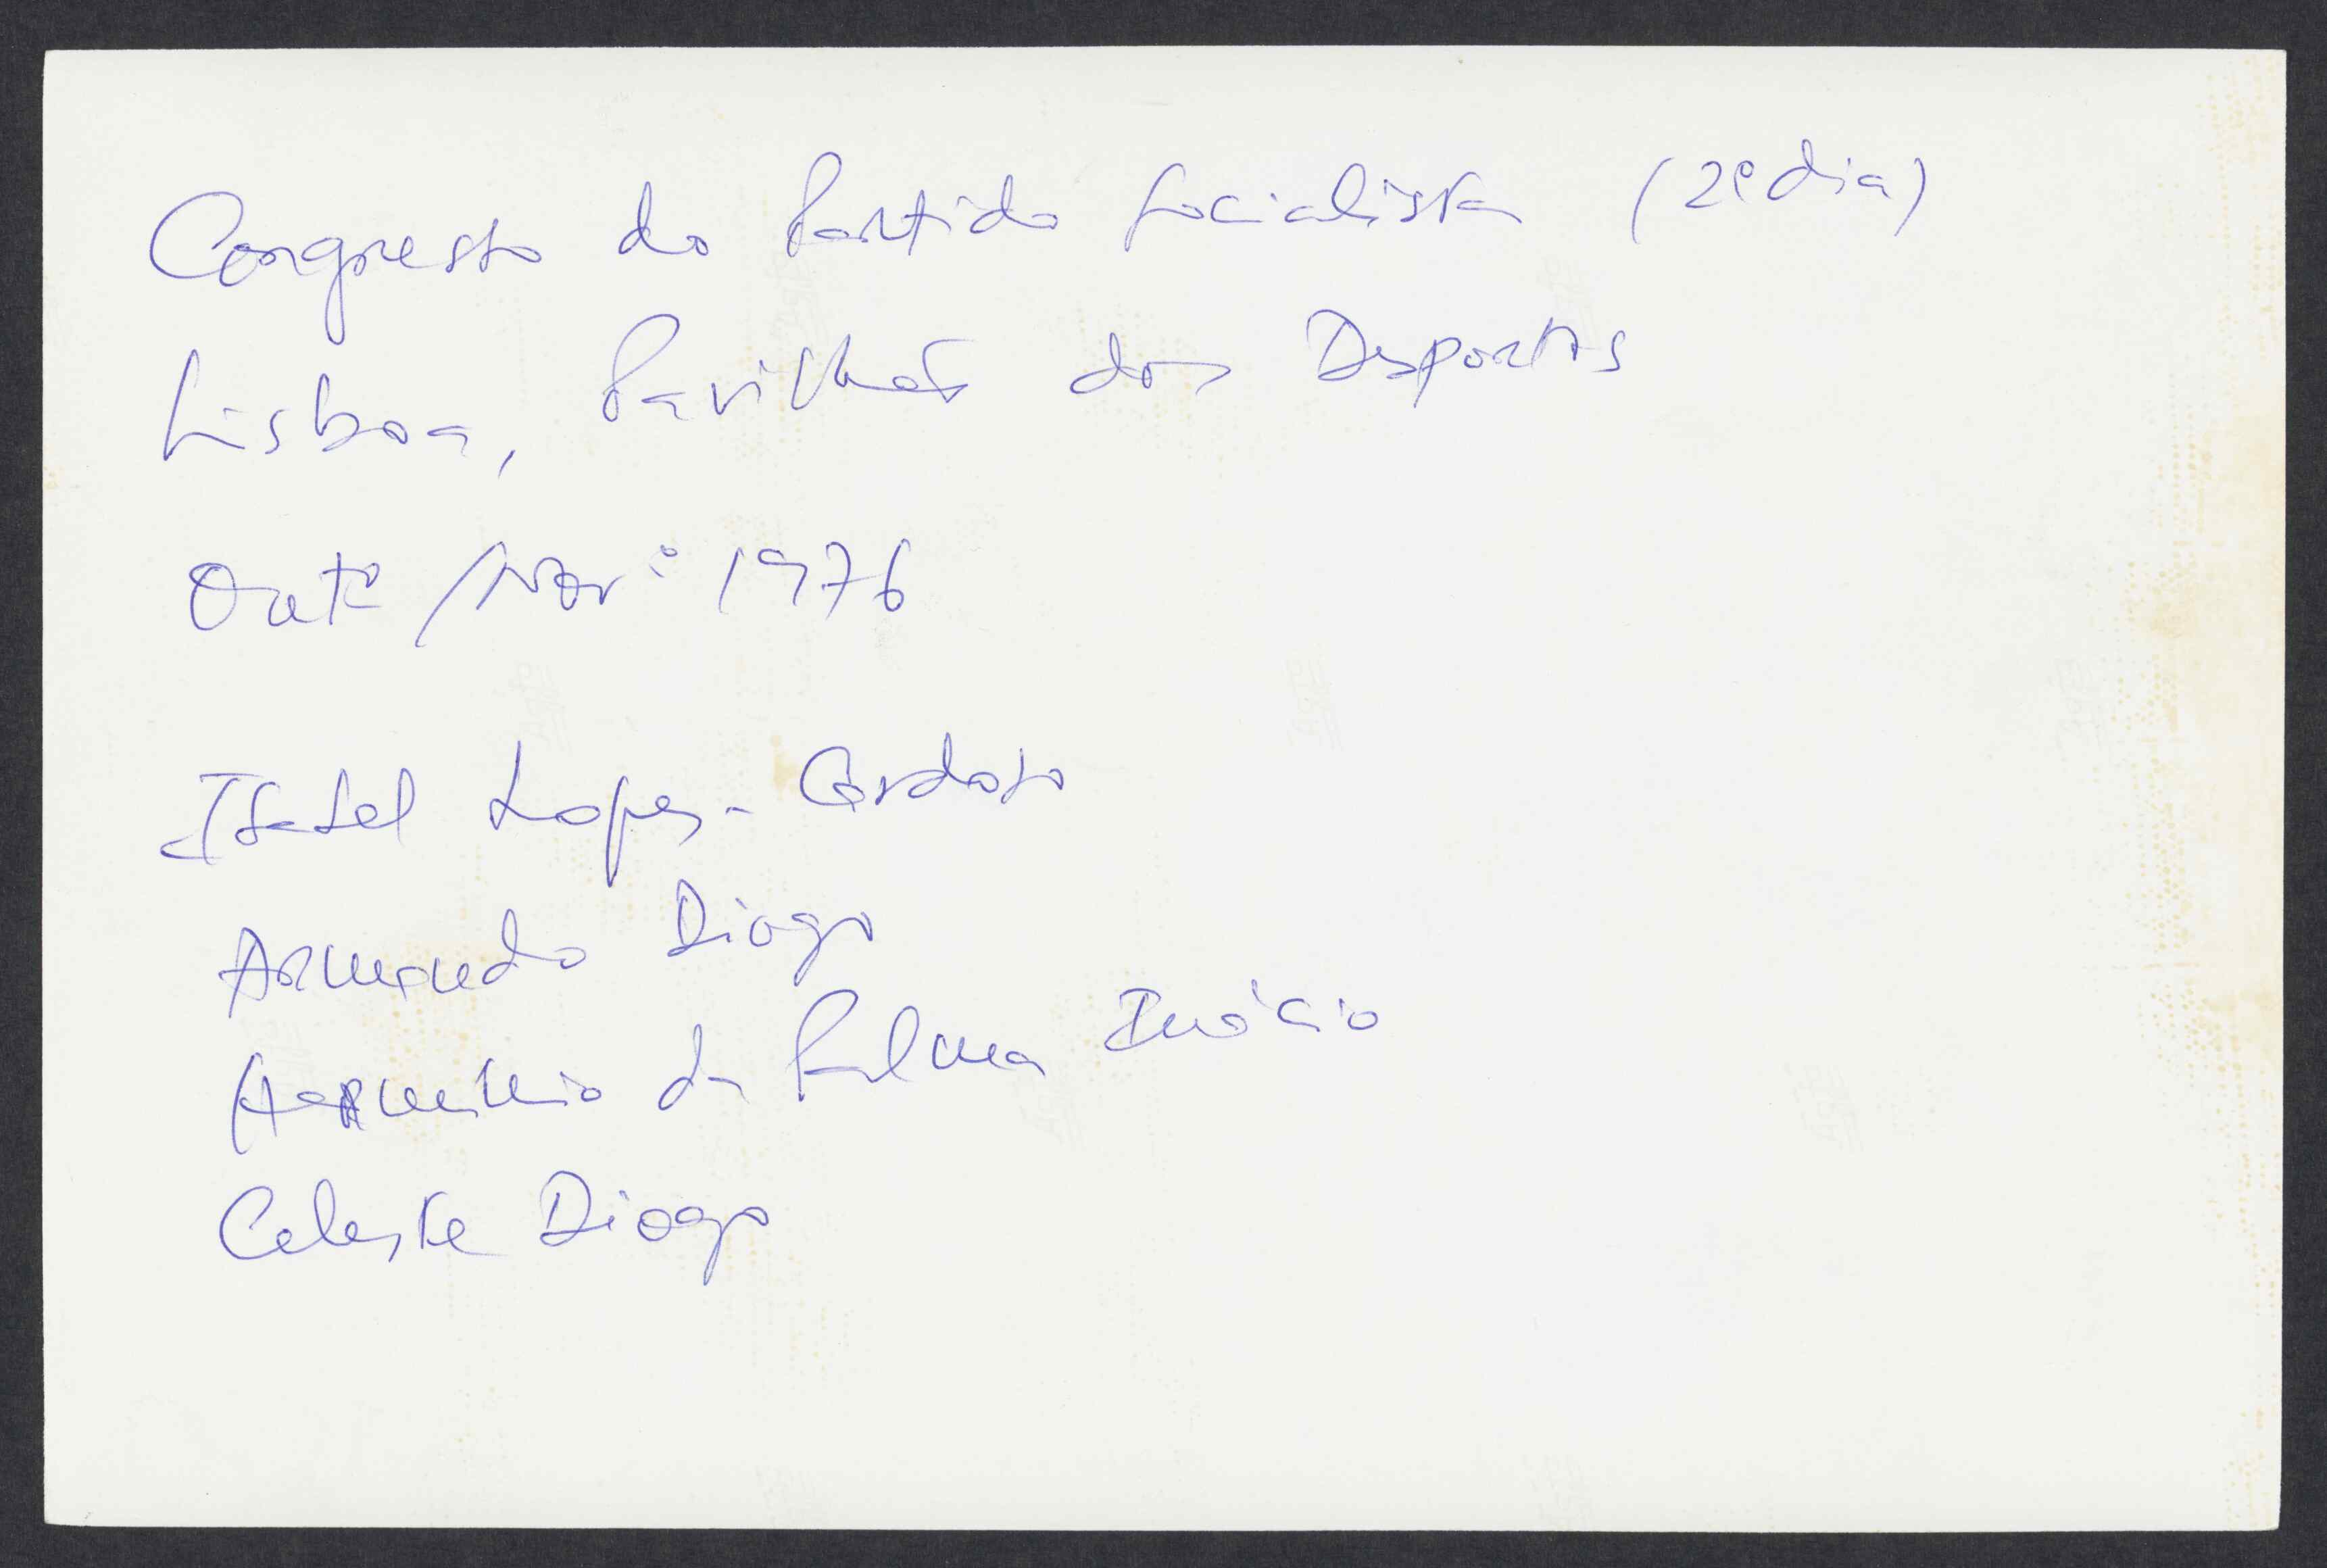 Congresso do Partido Socialista (2º dia)
Lisboa, Pavilhão dos Desportos
Outº / Novº 1976
Isabel Lopes-Cardoso
Armando Diogo
Hermínio da Palma Inácio
Celeste Diogo